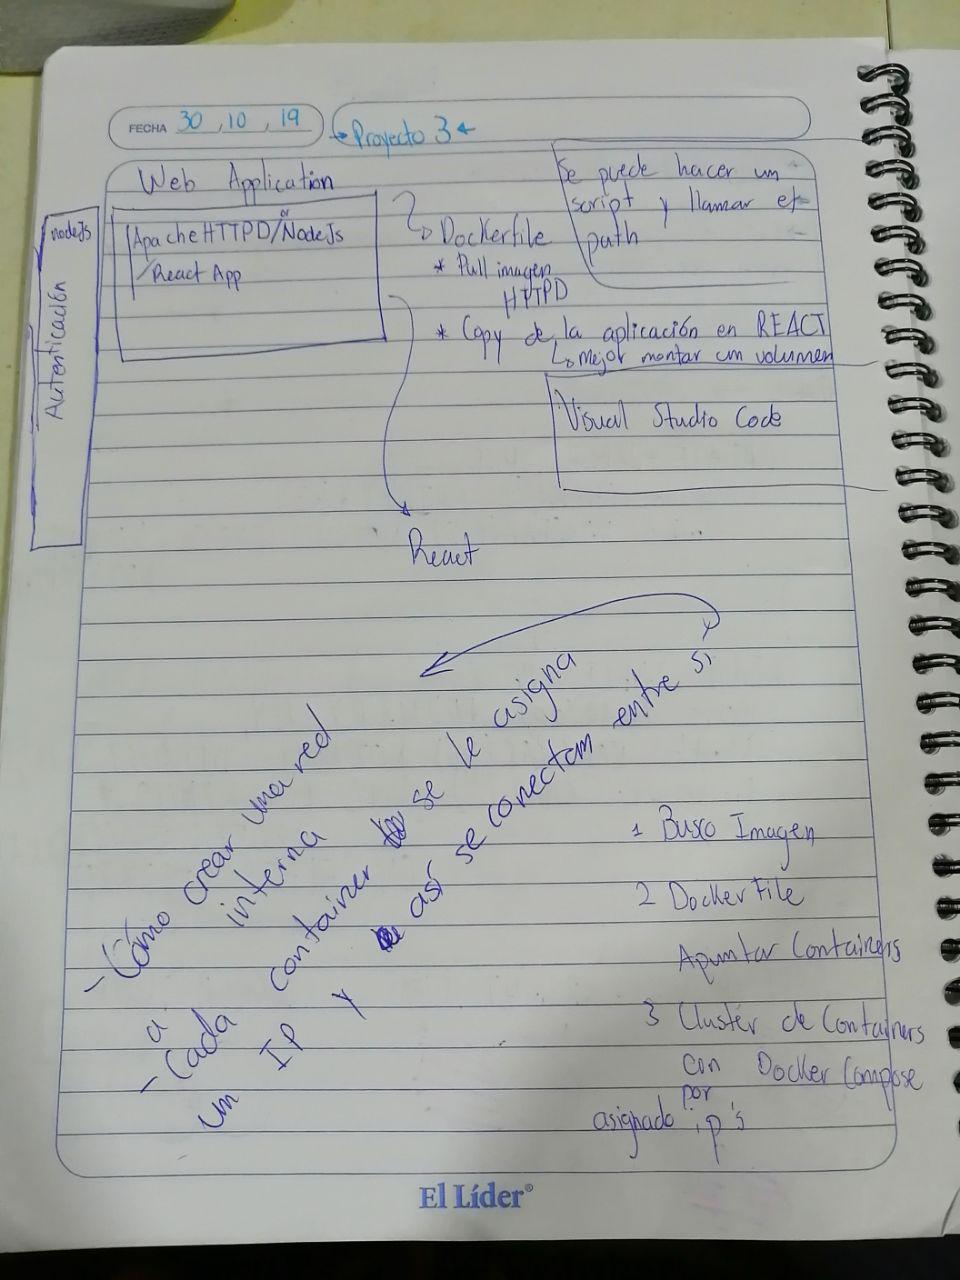 FECHA 30 , 10 , 19
Proyecto 3
Web Application
nodeJs
Autenticación
or
Apache HTTPD/NodeJs
/React App
Dockerfile
* Pull imagen
HTTPD
* Copy de la aplicación en REACT
Mejor montar un volumen
Se puede hacer un
script y llamar el
path
Visual Studio Code
React
- Cómo crear una red
interna
a
- Cada container se le asigna
un IP y así se conectan entre si
1 Busco Imagen
2 DockerFile
Apuntar Containers
3 Cluster de Containers
con Docker Compose
por
asignado ip's
El Líder®